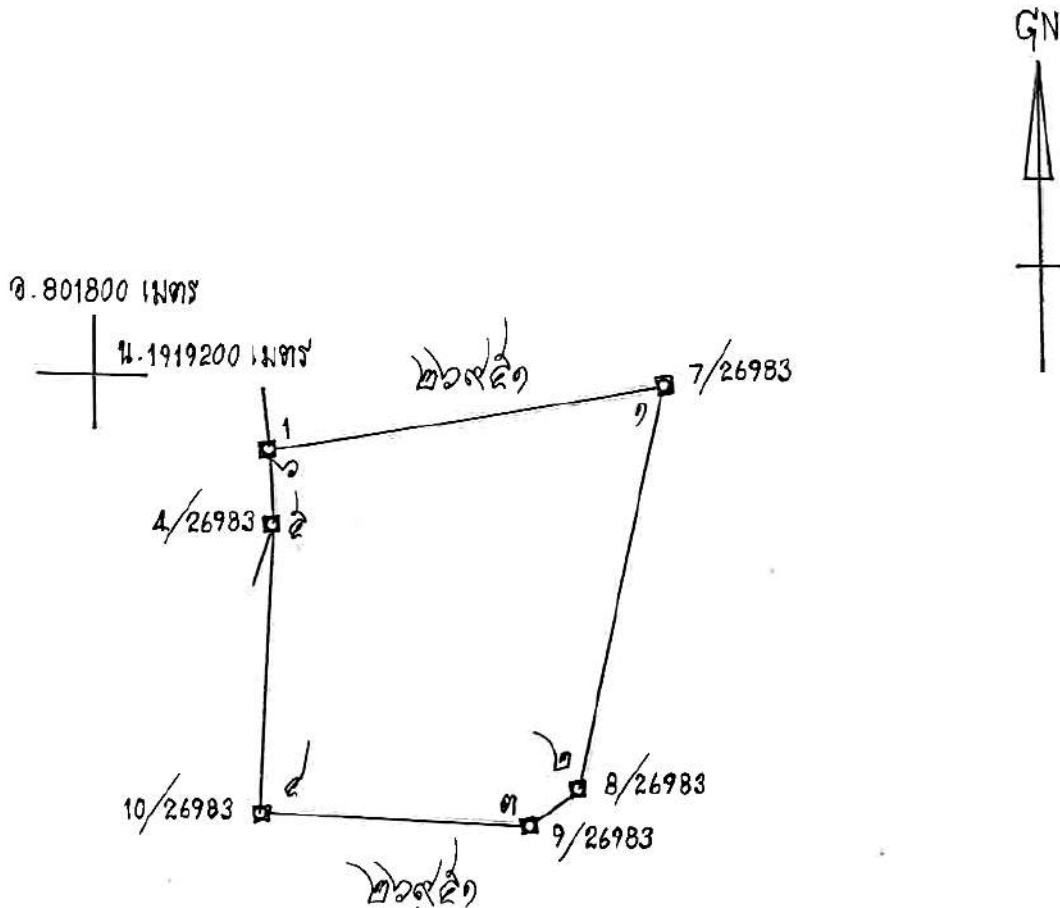 GN
อ.801800 เมตร
น.1919200 เมตร
๒๖๙๕๑
7/26983
๑
1
๖
4/26983
๕
๒
8/26983
๔
10/26983
๓
9/26983
๒๖๙๕๑